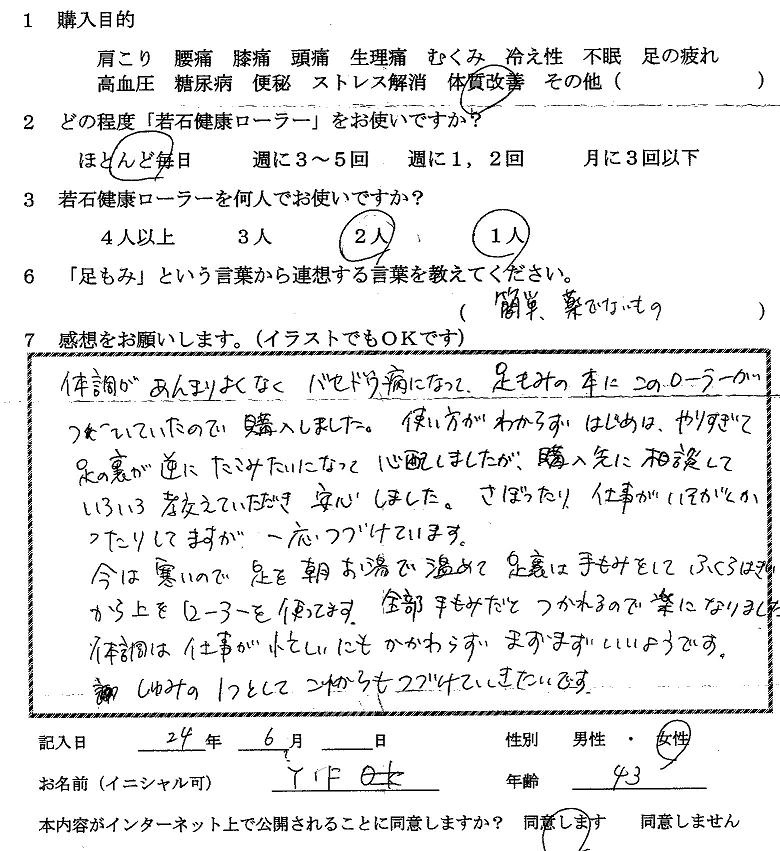 1 購入目的
肩こり 腰痛 膝痛 頭痛 生理痛 むくみ 冷え性 不眠 足の疲れ
高血圧 糖尿病 便秘 ストレス解消 体質改善 その他 ( )
2 どの程度「若石健康ローラー」をお使いですか?
ほとんど毎日 週に3~5回 週に1,2回 月に3回以下
3 若石健康ローラーを何人でお使いですか?
4人以上 3人 2人 1人
6 「足もみ」という言葉から連想する言葉を教えてください。
( 簡単、薬でないもの )
7 感想をお願いします。(イラストでもOKです)
体調があんまりよくなく バセドウ病になって、足もみの本にこのローラーが
ついていたので購入しました。使い方がわからず はじめは、やりすぎて
足の裏が逆にたこみたいになって心配しましたが、購入先に相談して
いろいろ教えていただき安心しました。さぼったり、仕事がいそがしか
ったりしてますが、一応つづけています。
今は寒いので足を朝お湯で温めて足裏は手もみをして ふくらはぎ
から上をローラーを使ってます。全部手もみだと つかれるので楽になりました
体調は仕事が忙しいにもかかわらず まずまずいいようです。
しゅみの1つとして これからもつづけていきたいです。
記入日 24年 6月 日 性別 男性 ・ 女性
お名前(イニシャル可) Y F 年齢 43
本内容がインターネット上で公開されることに同意しますか? 同意します 同意しません